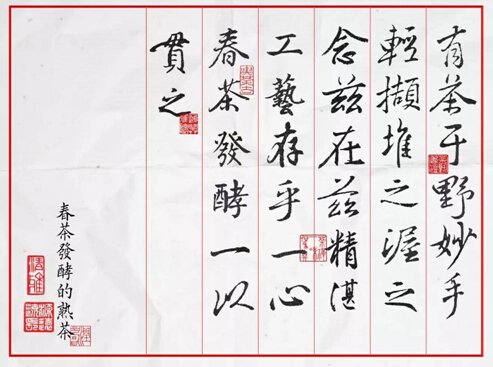 有茶于野妙手
輕擷堆之渥之
念兹在兹精湛
工藝存乎一心
春茶發酵一以
貫之
春茶發酵的熟茶